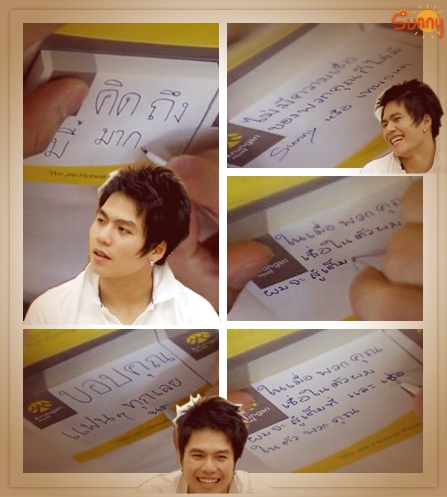 Sunny
คิดถึง
มี้ มาก
We are Honest
ไม่มีความเชื่อ
ของพวกคุณก็ไม่มี
Sunny หรือ
ในเมื่อ พวก คุณ
เชื่อในตัวผม
ผมจะสู้เต็ม
ขอบคุณ
แฟนๆ ทุกเลย
ในเมื่อ พวก คุณ
เชื่อในตัวผม
ผมจะ สู้เต็มที่ และ เชื่อ
ในตัว พวก คุณ